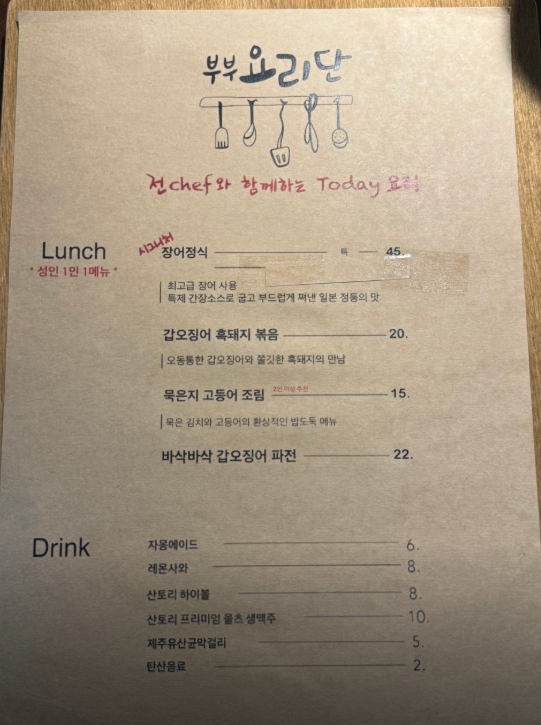 부부요리단
전chef와 함께하는 Today 요리
Lunch
* 성인 1인 1메뉴 *
시그니처
장어정식 특 45.
최고급 장어 사용
특제 간장소스로 굽고 부드럽게 쪄낸 일본 정통의 맛
갑오징어 흑돼지 볶음 20.
오동통한 갑오징어와 쫄깃한 흑돼지의 만남
묵은지 고등어 조림 2인 이상 추천 15.
묵은 김치와 고등어의 환상적인 밥도둑 메뉴
바삭바삭 갑오징어 파전 22.
Drink
자몽에이드 6.
레몬사와 8.
산토리 하이볼 8.
산토리 프리미엄 몰츠 생맥주 10.
제주유산균막걸리 5.
탄산음료 2.